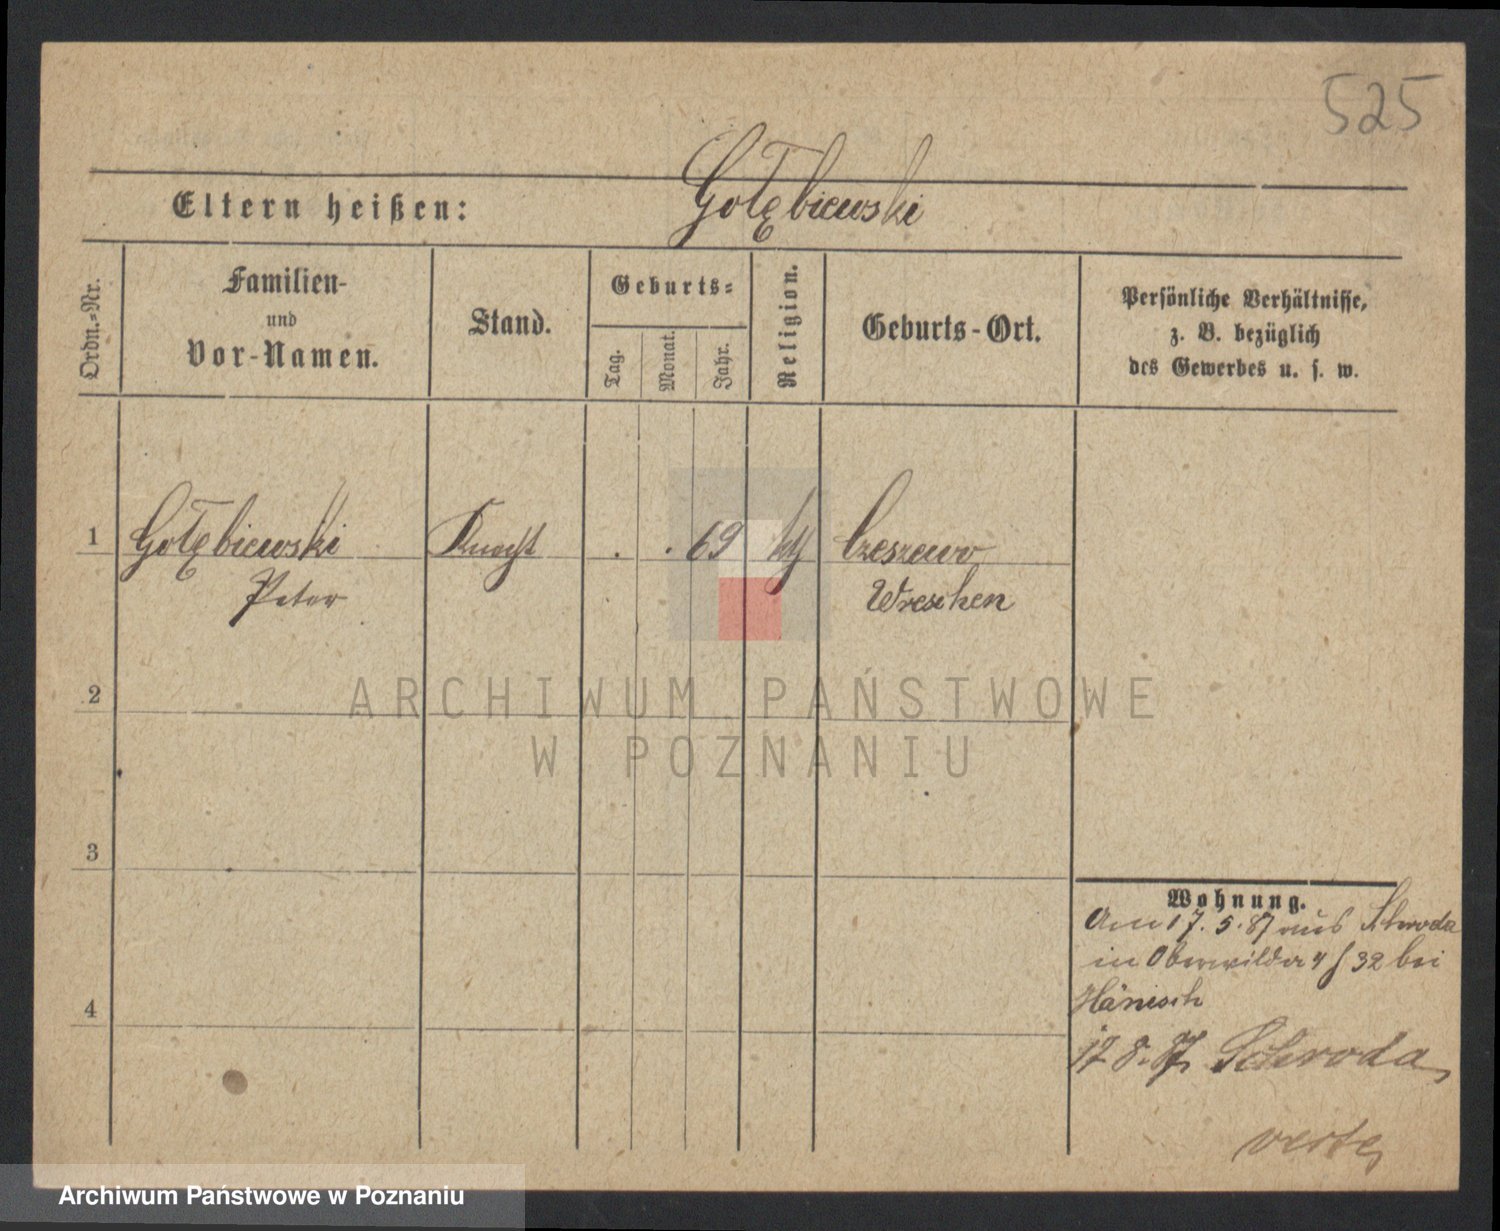 525
Eltern heißen: Gołębiewski
Ordn.-Nr.
Familien-
und
Vor-Namen.
Stand.
Geburts-
Tag.
Monat.
Jahr.
Religion.
Geburts-Ort.
Persönliche Verhältnisse,
z. B. bezüglich
des Gewerbes u. s. w.
1 Gołębiewski Knecht . . 69 kth Czeszewo
Peter Wreschen
2
ARCHIWUM PAŃSTWOWE
W POZNANIU
3
Wohnung.
Am 17.5.87 aus Schroda
in Oberwilda 4 f 32 bei
Hänisch
4
17 8. 87 Schroda
verte
Archiwum Państwowe w Poznaniu